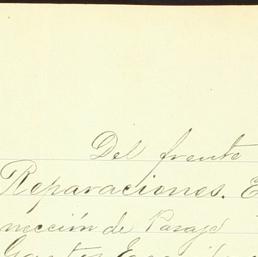 Del frente
Reparaciones. E
nección de Pasaje
Gastos